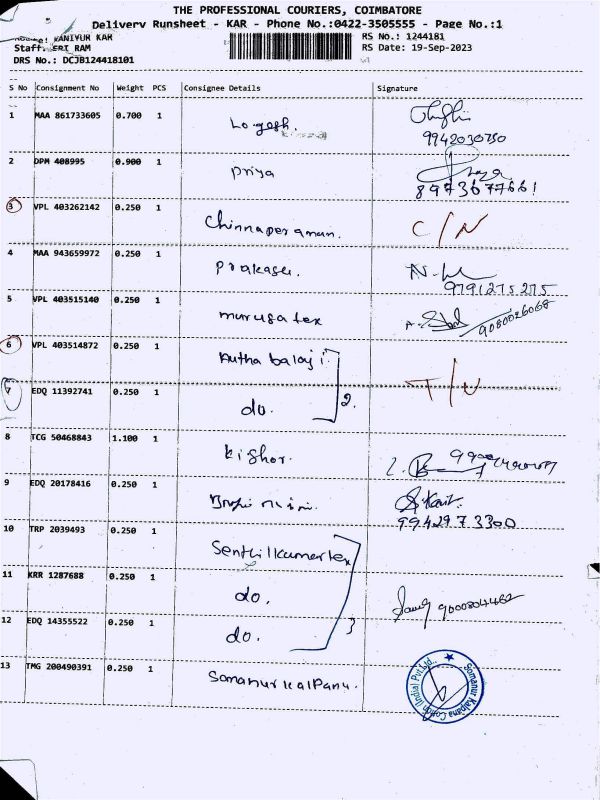 THE PROFESSIONAL COURIERS, COIMBATORE
Delivery Runsheet - KAR - Phone No.:0422-3505555 - Page No.:1
KANIYUR KAR
RS No.: 1244181
Staff: SRI RAM
RS Date: 19-Sep-2023
DRS No.: DCJB124418101
S No Consignment No Weight PCS Consignee Details Signature
1 MAA 861733605 0.700 1 Logesh.
9942030750
2 DPM 408995 0.900 1 Priya
8973677661
3 VPL 403262142 0.250 1 Chinnaperaman. C/N
4 MAA 943659972 0.250 1 Prakash.
9791275275
5 VPL 403515140 0.250 1 murugatex 9080026068
6 VPL 403514872 0.250 1 balaji.
T/N
7 EDQ 11392741 0.250 1 do. 2.
8 TCG 50468843 1.100 1 Kishor.
9 EDQ 20178416 0.250 1
9942973300
10 TRP 2039493 0.250 1 Senthilkumartex
11 KRR 1287688 0.250 1 do.
12 EDQ 14355522 0.250 1 do. 3
13 TMG 200490391 0.250 1 Somanurkalpana.
Somanur Kalpana Cotton (India) Pvt.Ltd.,